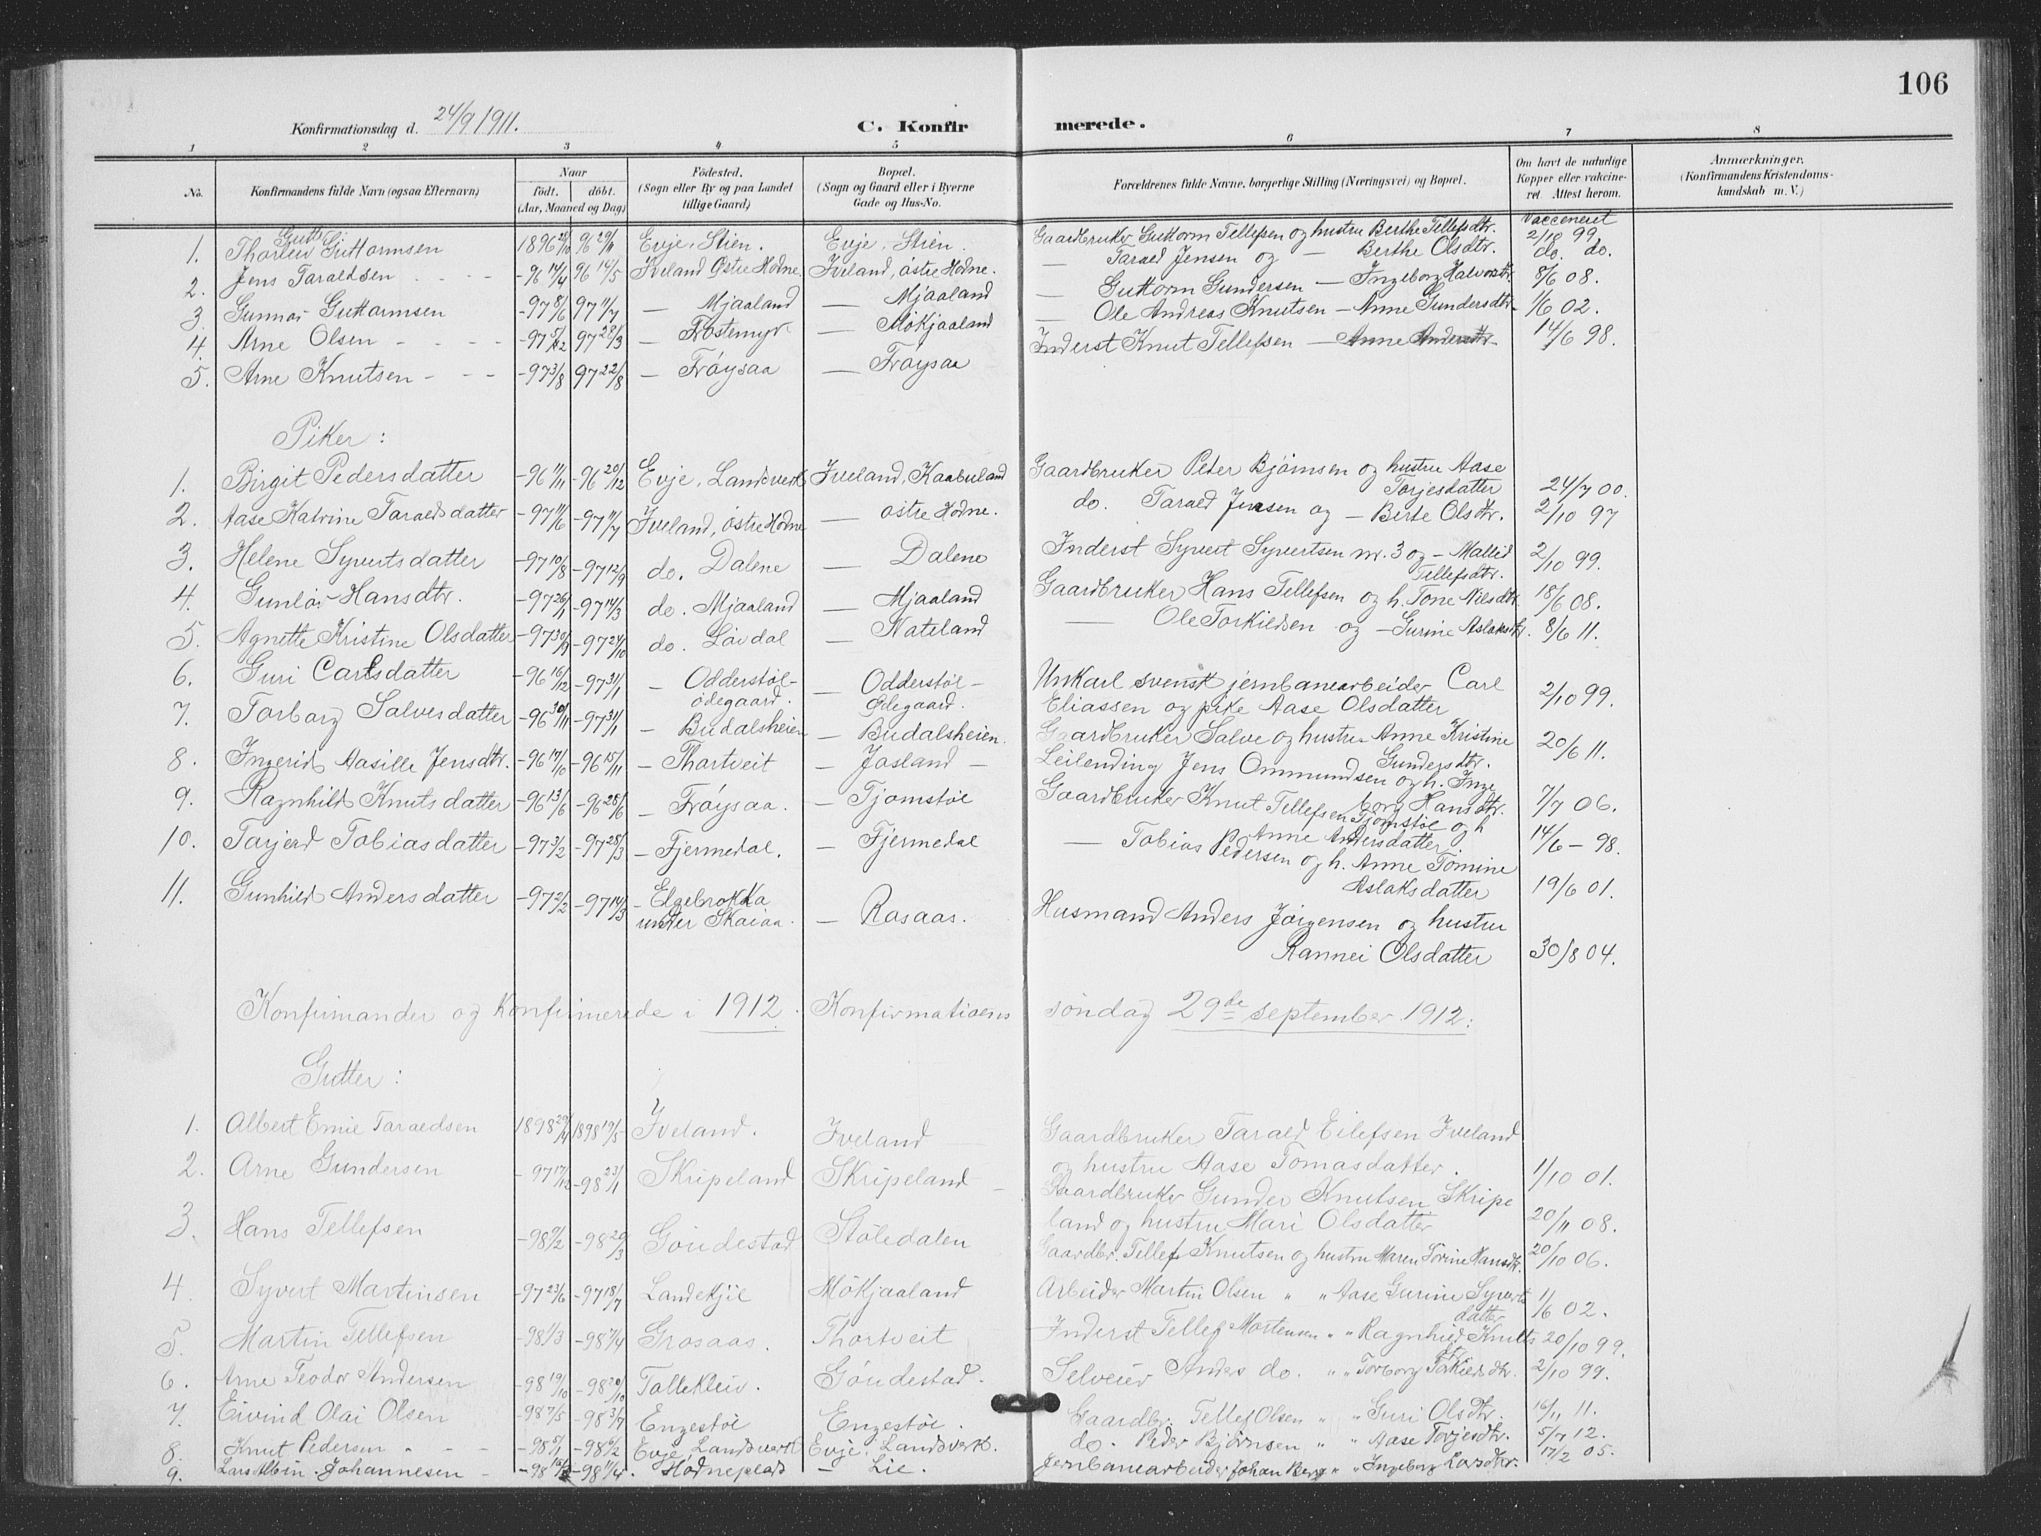 106
Konfirmationsdag d. 24/9 1911.
C. Konfirmerede.
1 2 3 4 5 6 7 8
No. Konfirmandens fulde Navn (ogsaa Efternavn) Naar født. døbt. (Aar, Maaned og Dag) Fødested. (Sogn eller By og paa Landet tillige Gaard) Bopæl. (Sogn og Gaard eller i Byerne Gade og Hus-No. Forældrenes fulde Navne, borgerlige Stilling (Næringsvei) og Bopæl. Om havt de naturlige Kopper eller vakcineret. Attest herom. Anmærkninger. (Konfirmandens Kristendomskundskab m. V.)
Gutt
1. Thorleiv Guttormsen 1896 96 29/11 Evje, Stien. Evje, Stien. Gaardbruker Guttorm Tellefsen og hustru Berthe Tellefsdtr. Vacceneret 2/10 99
2. Jens Taraldsen - - - -96 14/4 96 14/5 Iveland Østre Hodne. Iveland, østre Hodne. — Tarald Jensen og — Berthe Olsdtr. do. do.
3. Gunnar Guttormsen -97 8/6 97 11/7 — Mjaaland — Mjaaland — Guttorm Gundersen — Ingeborg Halvorsdtr. 8/6 08.
4. Arne Olsen - - - - -97 5/12 97 28/3 — Frostemyr — Møkjaaland — Ole Andreas Knutsen — Anne Gundersdtr. 1/6 02.
5. Arne Knutsen - - - -97 3/8 97 22/8 — Frøysaa — Frøysaa Inderst Knut Tellefsen — Anne Andersdtr. 14/6 98.
Piker :
1. Birgit Pedersdatter -96 11/11 -96 20/12 Evje, Landsverk Iveland, Kaabuland Gaardbruker Peter Bjørnsen og hustru Aase Torjesdatter 24/7 00.
2. Aase Katrine Taraldsdatter -97 11/6 -97 11/7 Iveland, østre Hodne — østre Hodne. do. Tarald Jensen og — Berte Olsdtr. 2/10 97
3. Helene Syvertsdatter -97 10/8 -97 12/9 do. Dalene — Dalene Inderst Syvert Syvertsen nr. 3 og — Mallid Tellefsdtr. 2/10 99.
4. Gunlør Hansdtr. -97 26/1 -97 14/3 do. Mjaaland — Mjaaland Gaardbruker Hans Tellefsen og h. Tone Nilsdtr. 18/6 08.
5. Agnette Kristine Olsdatter -97 30/9 -97 24/10 do. Løvdal — Nateland — Ole Torkildsen og — Gurine Aslaksdtr. 8/6 11.
6. Guri Carlsdatter -96 16/12 -97 31/1 — Odderstøl-ødegaard. — Odderstøl-Ødegaard. Unkarl svensk jernbanearbeider Carl Eliassen og pike Aase Olsdatter 2/10 99.
7. Torborg Salvesdatter -96 30/11 -97 31/1 — Budalsheien — Budalsheien. Gaardbruker Salve og hustru Anne Kristine Gundersdtr. 20/6 11.
8. Ingerid Aasille Jensdtr. -96 17/10 -96 15/11 — Thortveit — Josland — Leilending Jens Ommundsen og h. Ingeborg Hansdtr. 7/7 06.
9. Ragnhild Knutsdatter -96 13/6 -96 28/6 — Frøysaa. — Tjomstøl Gaardbruker Knut Tellefsen Tjomstøl og h Anne Andersdatter 14/6 - 98.
10. Tarjerd Tobiasdatter -97 3/2 -97 28/3 — Fjermedal. — Fjermedal — Tobias Pedersen og h. Anne Tomine Aslaksdatter 19/6 01.
11. Gunhild Andersdatter -97 2/2 -97 14/3 — Elgebrokka under Skaiaa. — Rosaas. Husmand Anders Jørgensen og hustru Rannei Olsdatter 30/8 04.
Konfirmander og Konfirmerede i 1912. Konfirmationssøndag 29de september 1912.
Gutter :
1. Albert Emil Taraldsen 1898 29/4 1898 19/5 Iveland. Iveland — Gaardbruker Tarald Eilefsen Iveland og hustru Aase Tomasdatter. 1/10 01.
2. Arne Gundersen -97 17/12 -98 23/1 Skripeland Skripeland — Gaardbruker Gunder Knutsen Skripeland og hustru Mari Olsdatter 20/11 08.
3. Hans Tellefsen -98 9/2 -98 20/3 Gøudestad Støledalen Gaardbr. Tellef Knutsen og hustru Maren Torine Hansdtr. 20/10 06.
4. Syvert Martinsen -97 23/6 -97 18/7 Landekjil Møkjaaland Arbeider Martin Olsen " " Aase Gurine Syvertsdatter 1/6 02.
5. Martin Tellefsen -98 1/3 -98 7/4 Grosaas. Thortveit Inderst Tellef Mortensen " " Ragnhild Knutsdtr. 20/10 99.
6. Arne Teodor Andersen -98 19/10 -98 20/10 Tollekleiv. Gøudestad. Selveier Anders do. " " Torborg Torkildsdtr. 2/10 99.
7. Eivind Olai Olsen -98 7/5 -98 3/7 Engestøl Engestøl. Gaardbr. Tellef Olsen " " Guri Olsdtr. 16/11 11.
8. Knut Pedersen " - - -98 5/1 -98 6/2 Evje Landsverk Evje, Landsverk. do. Peder Bjørnsen " " Aase Torjesdtr. 5/7 12.
9. Lars Albin Johannesen - -98 -98 11/4. Hodneplads — Lie. Jernbanearbeider Johan Berg " " Ingeborg Larsdtr. 17/2 05.